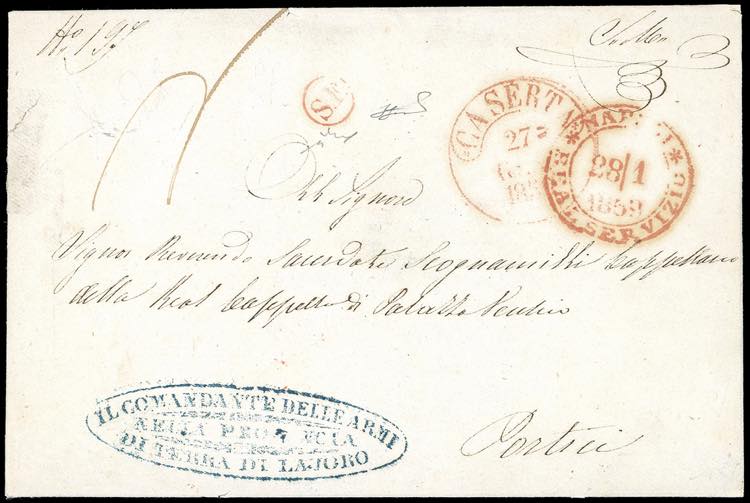 No 197
S.F.
CASERTA
27
NAPOLI
28/1
1859
REAL SERVIZIO
Signore
Signor Reverendo Sacerdote Scognamillo Cappellano
della Real Cappella di Palazzo Vecchio
IL COMANDANTE DELLE ARMI
NELLA PROVINCIA
DI TERRA DI LAVORO
Portici